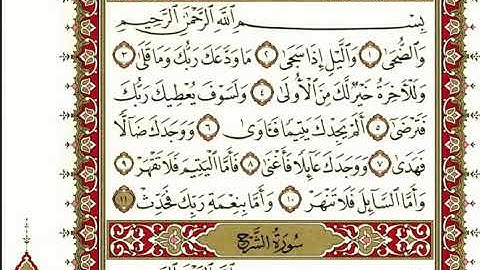 بِسْمِ اللَّهِ الرَّحْمَٰنِ الرَّحِيمِ
وَالضُّحَىٰ ١ وَاللَّيْلِ إِذَا سَجَىٰ ٢ مَا وَدَّعَكَ رَبُّكَ وَمَا قَلَىٰ ٣
وَلَلْآخِرَةُ خَيْرٌ لَّكَ مِنَ الْأُولَىٰ ٤ وَلَسَوْفَ يُعْطِيكَ رَبُّكَ
فَتَرْضَىٰ ٥ أَلَمْ يَجِدْكَ يَتِيمًا فَآوَىٰ ٦ وَوَجَدَكَ ضَالًّا
فَهَدَىٰ ٧ وَوَجَدَكَ عَائِلًا فَأَغْنَىٰ ٨ فَأَمَّا الْيَتِيمَ فَلَا تَقْهَرْ ٩
وَأَمَّا السَّائِلَ فَلَا تَنْهَرْ ١٠ وَأَمَّا بِنِعْمَةِ رَبِّكَ فَحَدِّثْ ١١
سُورَةُ الشَّرْحِ